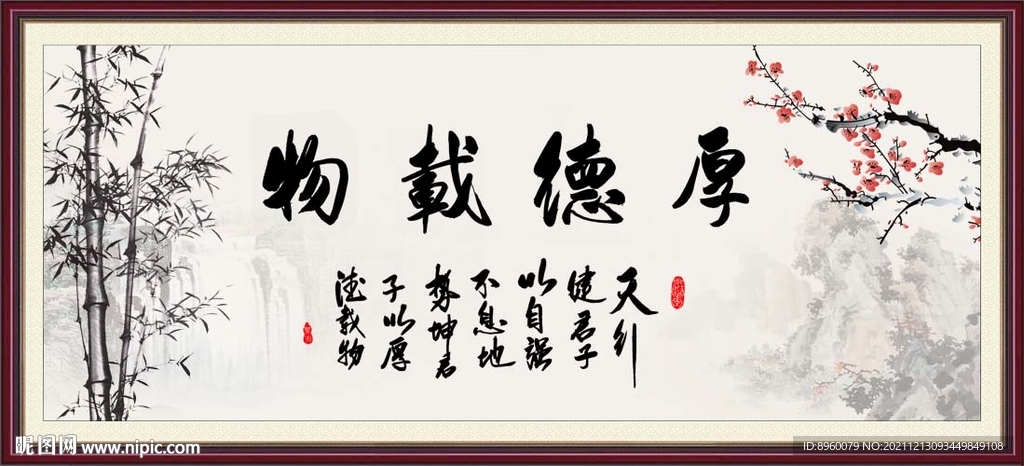 厚德載物
天行
健君子
以自強
不息地
勢坤君
子以厚
德載物
昵图网 www.nipic.com
ID:8960079 NO:20211213093449849108